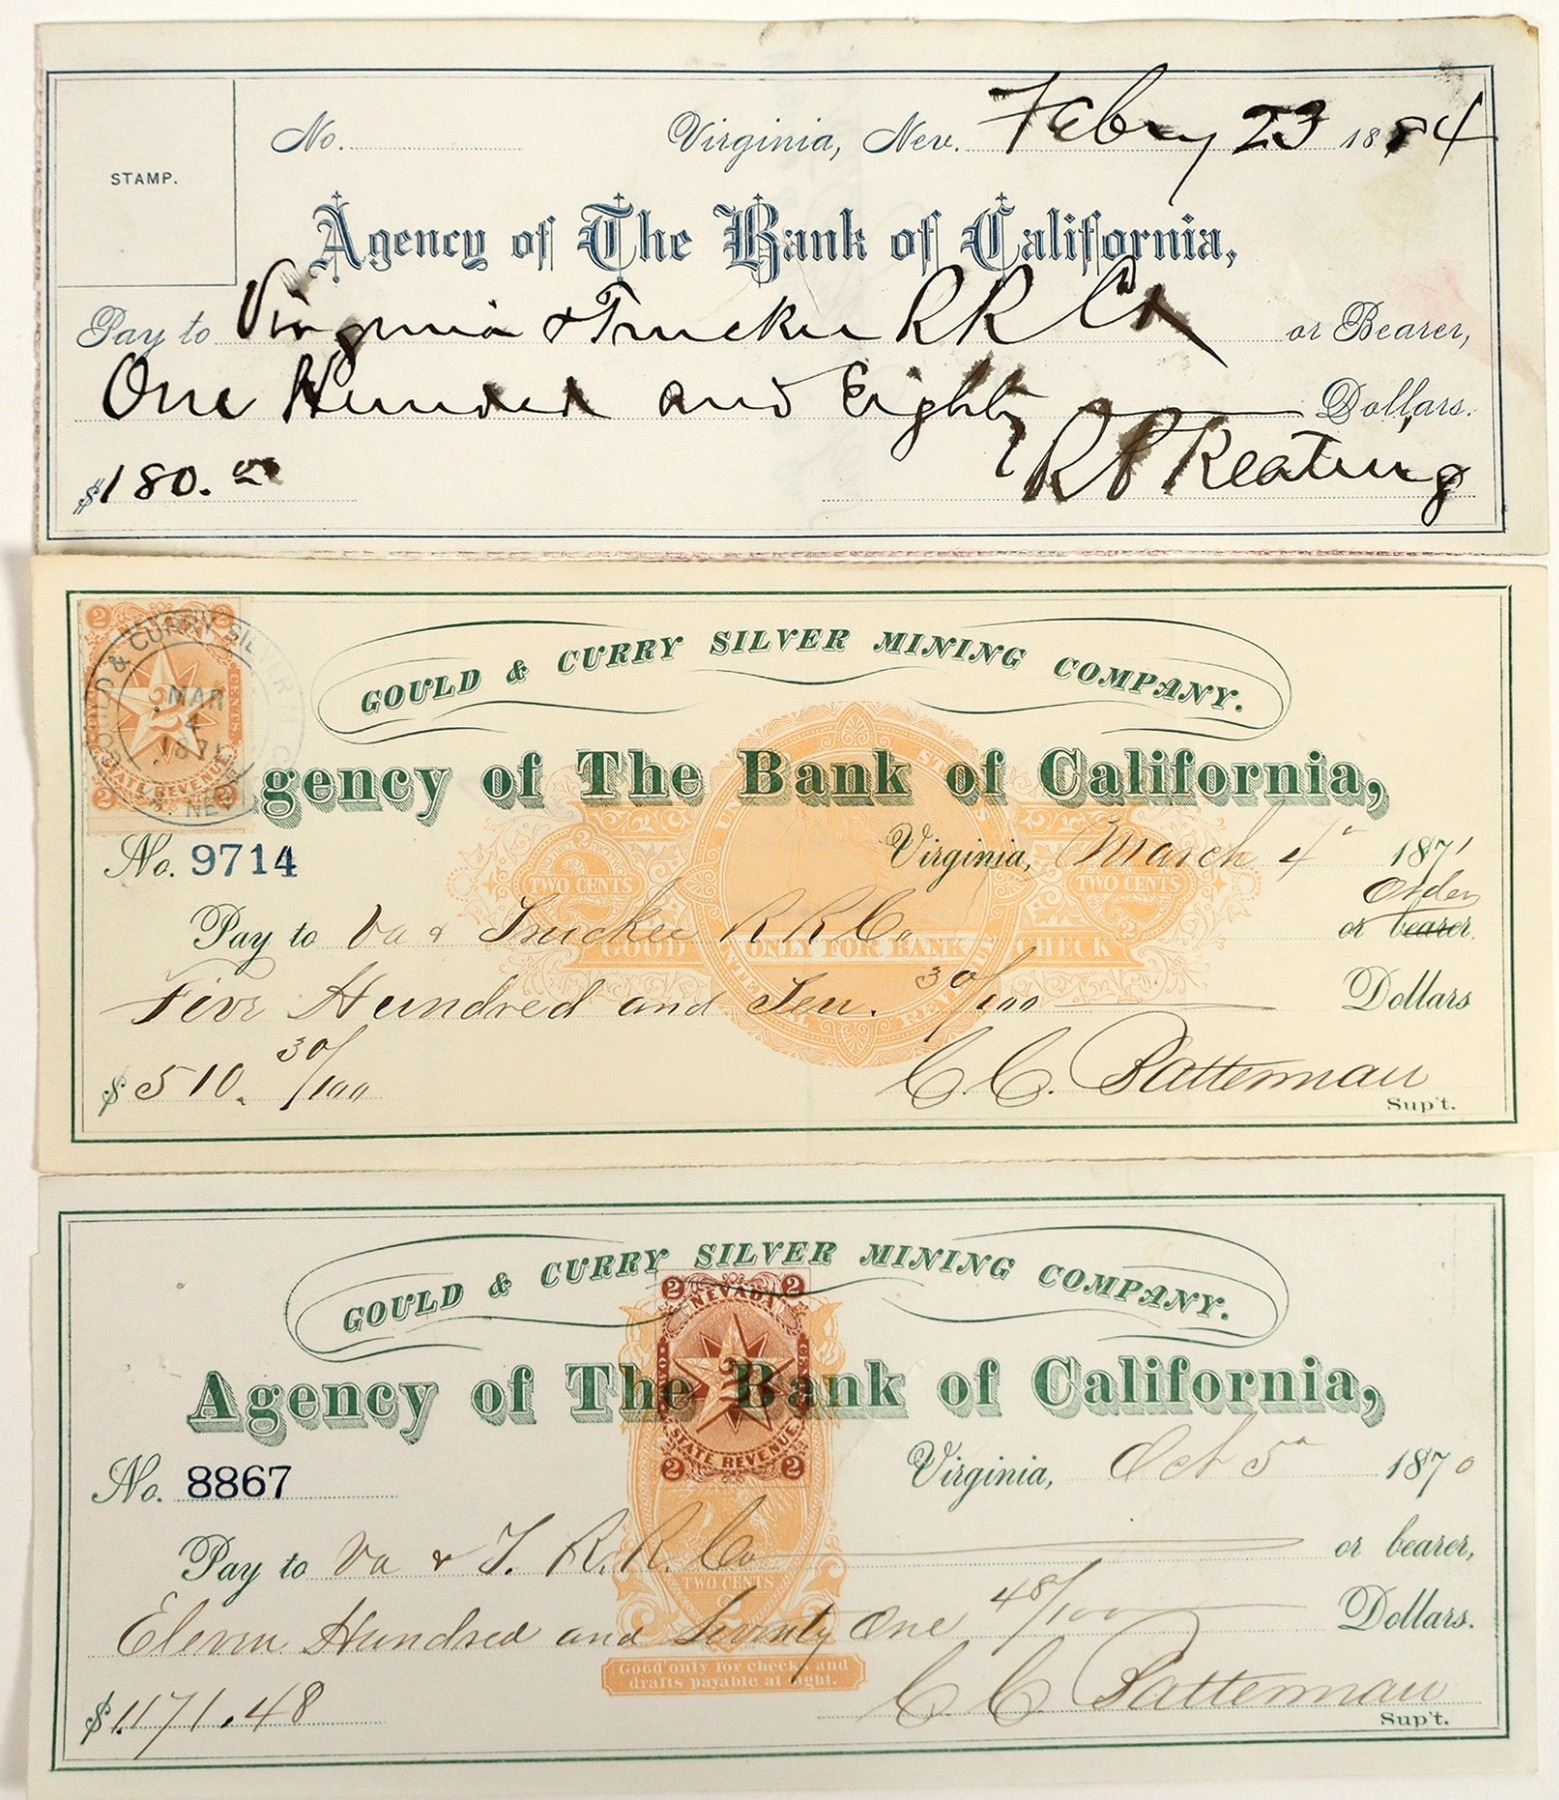 STAMP.
No. Virginia, Nev. Febry 23 1884
Agency of The Bank of California,
Pay to Virginia & Truckee RR Co or Bearer,
One Hundred and Eighty Dollars.
$180.00 R P Keating
2 2
GOULD & CURRY SILVER
CENTS
2
MAR
4
1871
STATE REVENUE
2 2
NE
GOULD & CURRY SILVER MINING COMPANY.
gency of The Bank of California,
No. 9714 Virginia, March 4" 1871
Order
Pay to Va & Truckee R R Co or bearer.
TWO CENTS 2 TWO CENTS 2
GOOD ONLY FOR BANK CHECK
Five Hundred and Ten. 30/100 Dollars
$510. 30/100 C. C. Batterman
Sup't.
GOULD & CURRY SILVER MINING COMPANY.
2 NEVADA 2
TWO 2 CENTS
STATE REVENUE
2 2
Agency of The Bank of California,
No. 8867 Virginia, Oct 5" 1870
Pay to Va & T. R. R. Co or bearer,
TWO CENTS
2
Eleven Hundred and Seventy One 48/100 Dollars.
Good only for checks and
drafts payable at sight.
$1171.48 C. C. Batterman
Sup't.